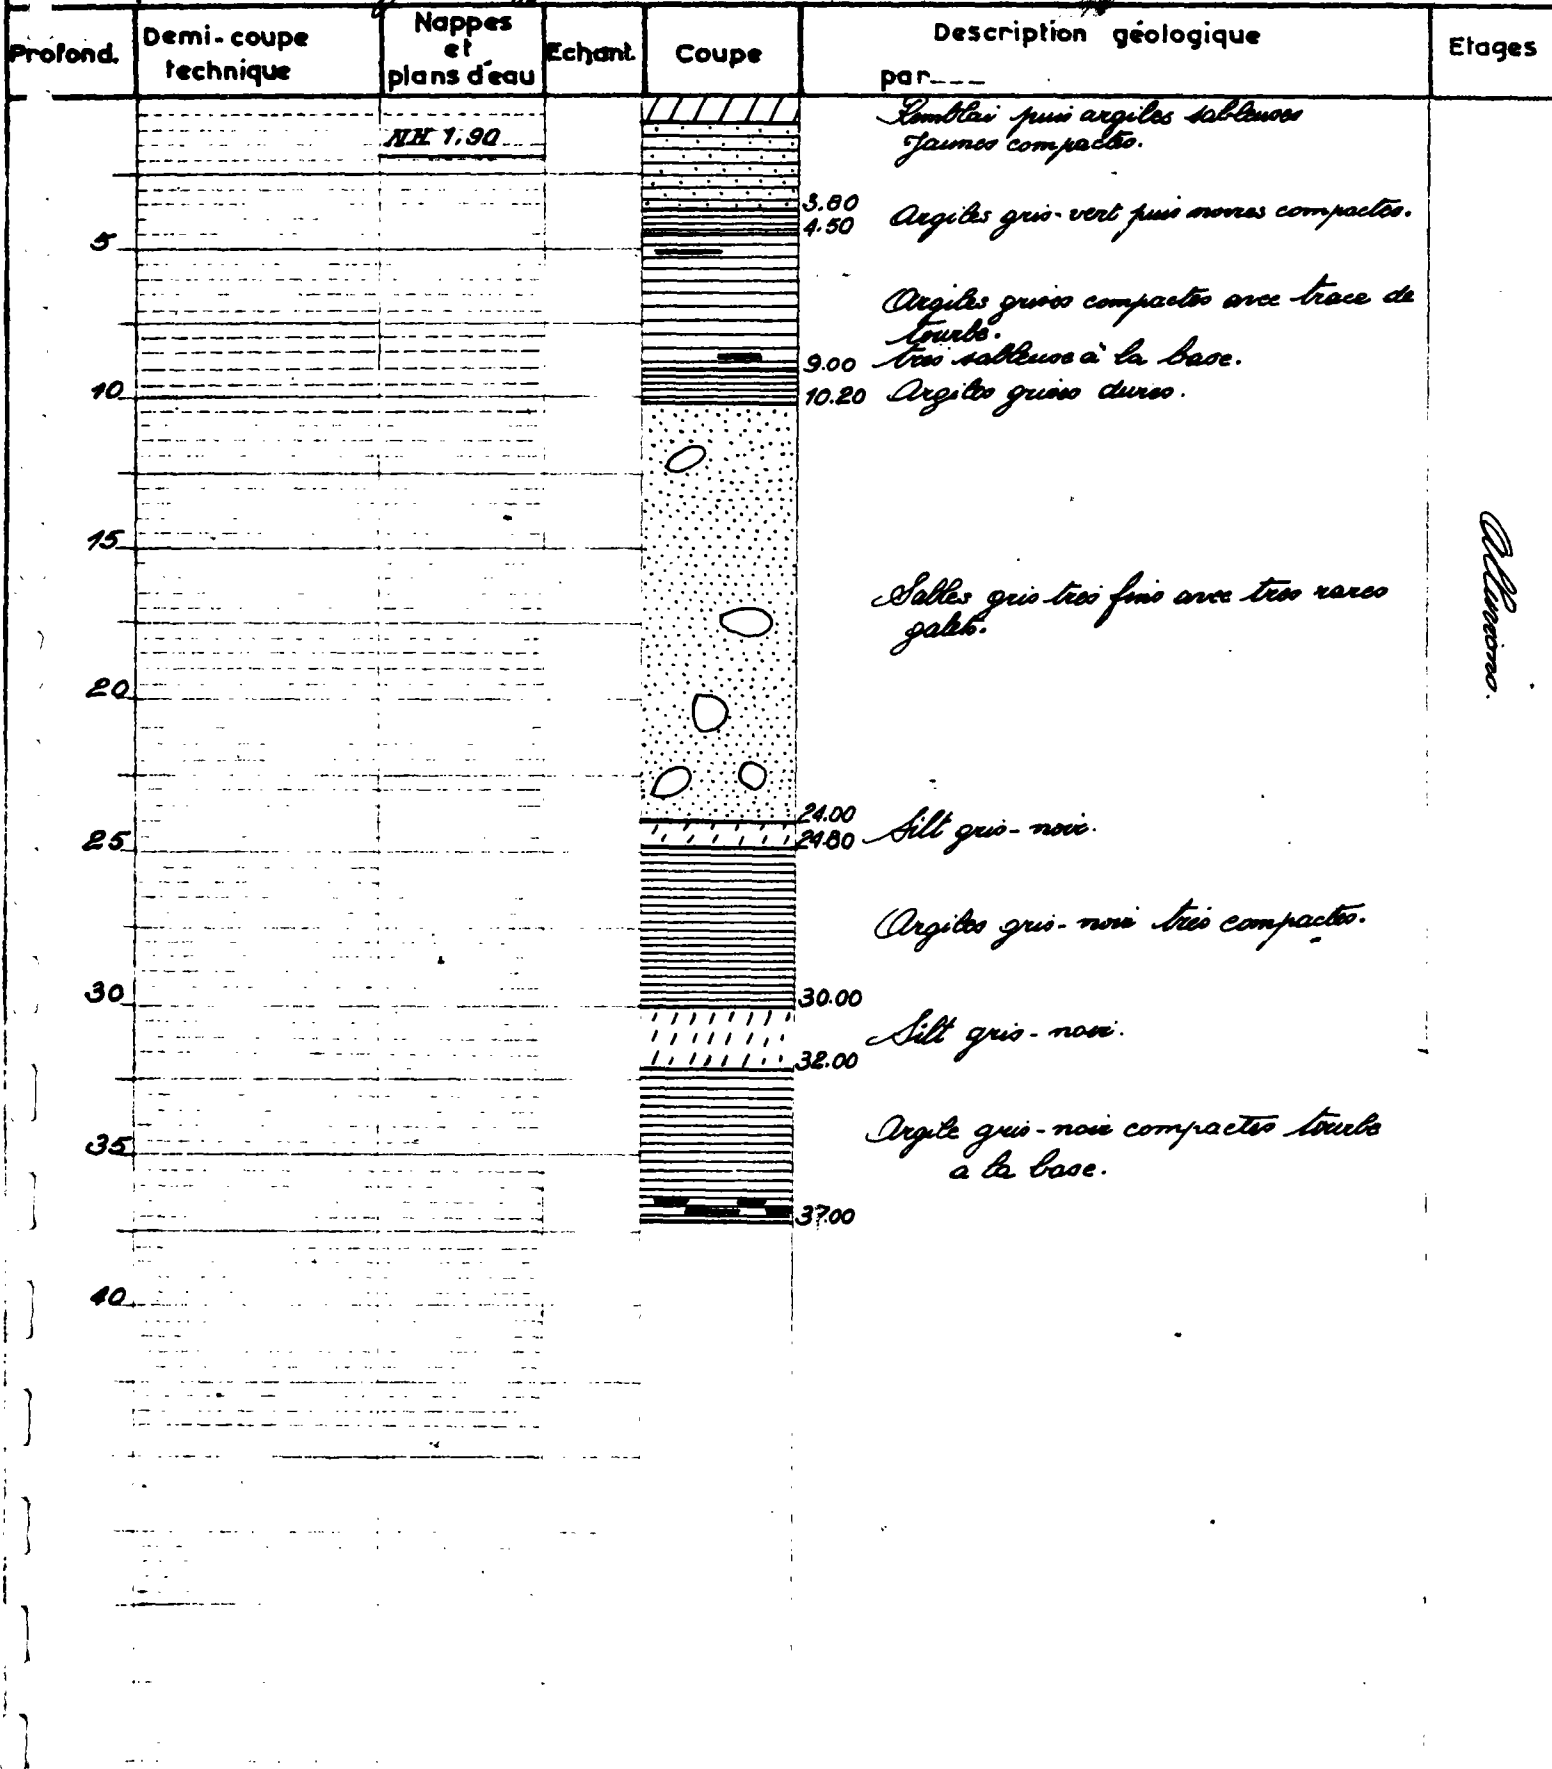 Profond.
Demi-coupe
technique
Nappes
et
plans d'eau
Echant.
Coupe
Description géologique
par---
Etages
Remblai puis argiles sableuses
Jaunes compactes.
NH 1.90
3.80
4.50
Argiles gris-vert puis noires compactes.
5
Argiles grises compactes avec trace de
tourbe.
9.00
très sableuse à la base.
10
10.20
Argiles grises dures.
15
Sables gris très fins avec très rares
galets.
Alluvions.
20
24.00
24.80
Silt gris-noir.
25
Argiles gris-noir très compactes.
30
30.00
Silt gris-noir.
32.00
35
Argile gris-noir compactes tourbe
a la base.
37.00
40